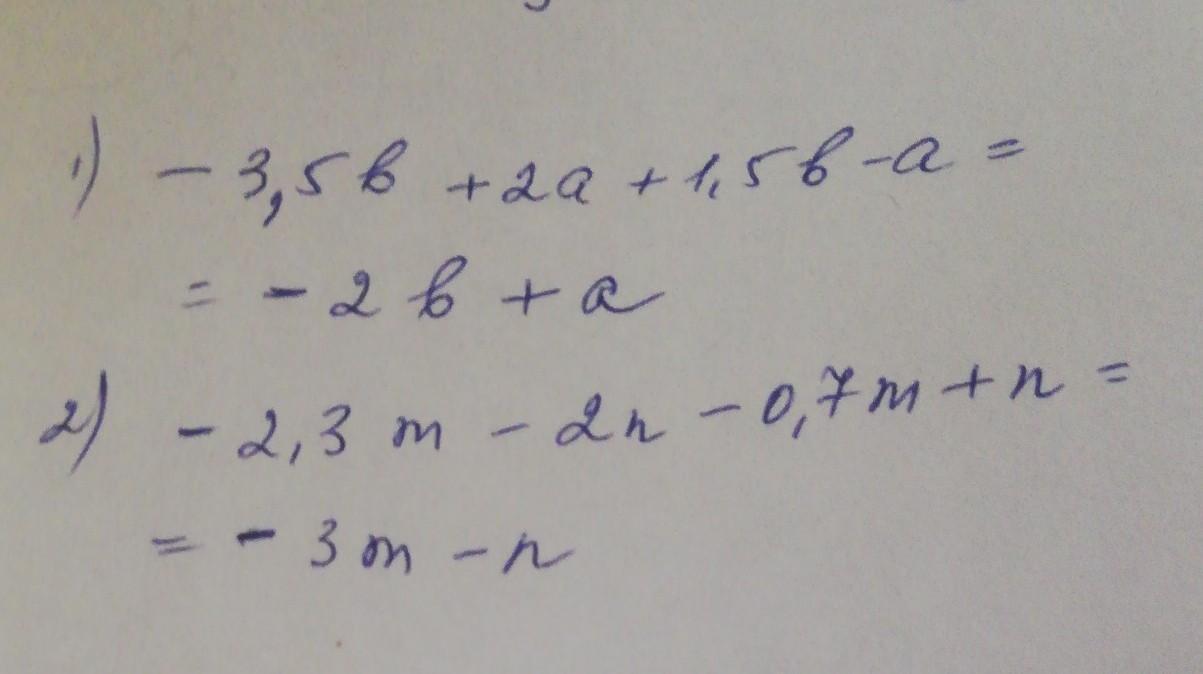 1) - 3,5b + 2a + 1,5b - a =
= - 2b + a
2) - 2,3m - 2n - 0,7m + n =
= - 3m - n